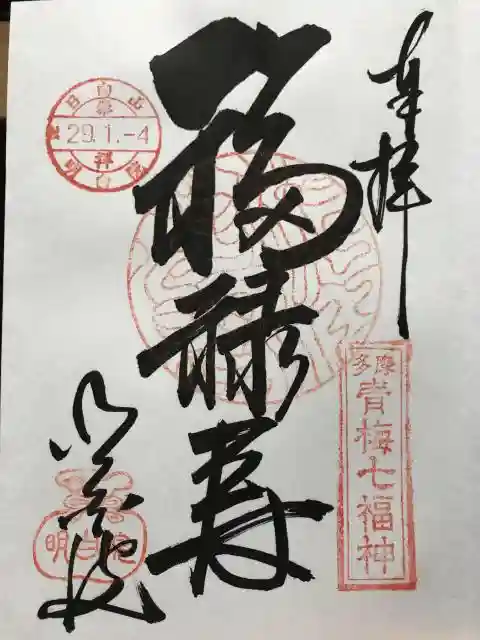 奉拝
多摩
青梅七福神
福禄寿
29.1.-4
明白院
明白院